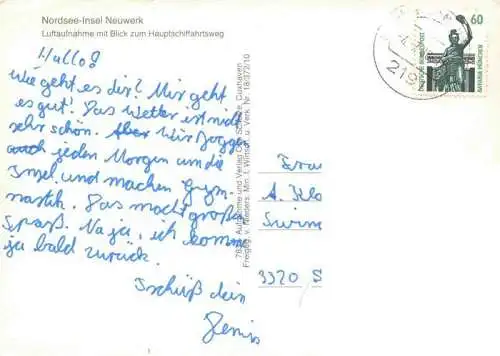 Nordsee-Insel Neuwerk
Luftaufnahme mit Blick zum Hauptschiffahrtsweg
Hallo!
Wie geht es dir? Mir geht
es gut! Das Wetter ist nicht
sehr schön. Aber Wir Jogge
auch jeden Morgen um die
Insel, und machen Gym-
nastik. Das macht großen
Spaß. Na ja, ich komme
ja bald zurück.
Tschüß dein
60
DEUTSCHE BUNDESPOST
BAVARIA MÜNCHEN
219
Frau
A. Klo
3320 S
Aufnahme und Verlag Schulze, Cuxhaven
Freigeg. v. Nieders. Min. f. Wirtsch. u. Verk. Nr. 18/372/10